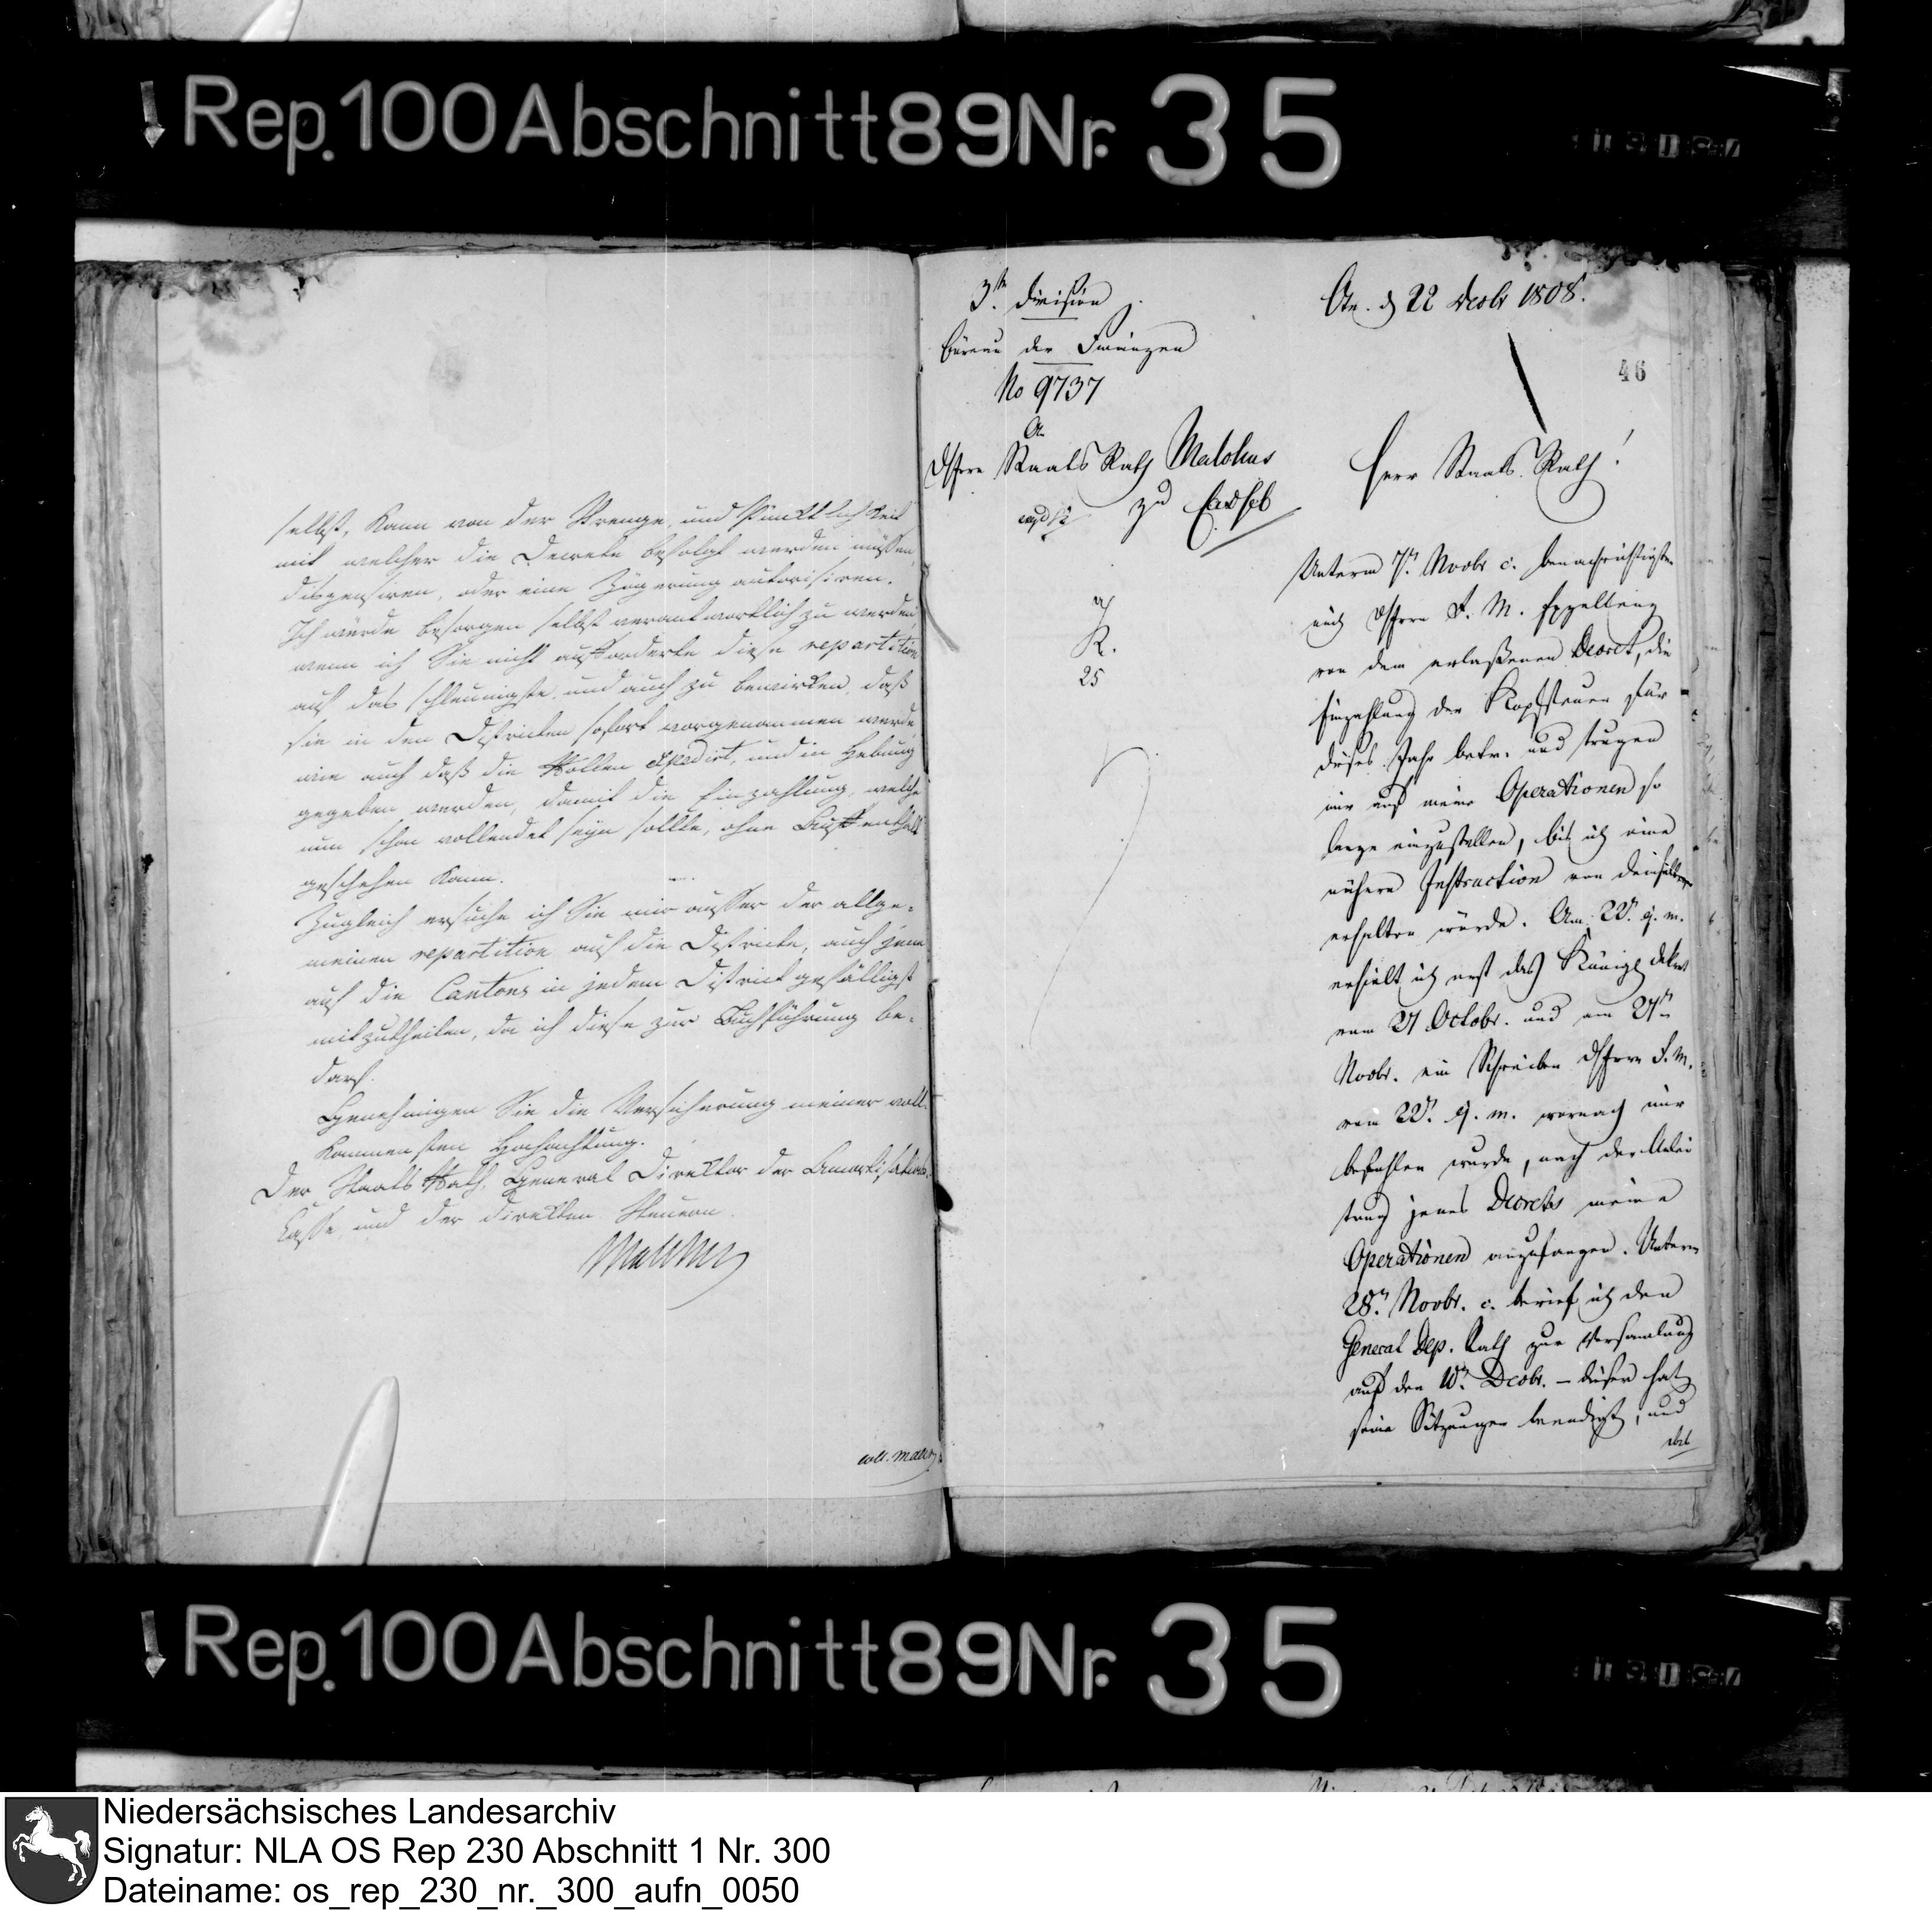 Rep. 100 Abschnitt 89 Nr. 35
selbst, kann von der Strenge, und Pünktlichkeit
mit welcher die Decrete befolgt werden müssen,
dispensiren, oder eine Zögerung autorisiren.
Ich würde besorgen selbst verantwortlich zu werden,
wenn ich Sie nicht aufforderte diese repartition
auf das schleunigste, und auch zu bewirken, daß
sie in den Districten sofort vorgenommen werde,
wie auch daß die Rollen expedirt, und in Hebung
gegeben werden, damit die Einzahlung, welche
nun schon vollendet seyn sollte, ohne Auffenthalt
geschehen kann.
Zugleich ersuche ich Sie mir ausser der allge-
meinen repartition auf die Districte, auch jene
auf die Cantons in jedem District gefälligst
mitzutheilen, da ich diese zur Buchführung be-
darf.
Genehmigen Sie die Versicherung meiner voll-
kommensten Hochachtung.
Der Staats Rath, General Direktor der Amortisations-
Casse, und der direkten Steuern.
Malchus
3te Division
Büreau der Finanzen
No 9737
An
Herrn Staats Rath Malchus
zu Cassel
K.
25
Osn. d 22 Decbr 1808.
46
Herr Staats Rath!
Unterm 7n Novbr c. benachrichtigten
mich
von dem erlaßenen Decret, die
Einzahlung der Kopfsteuer für
dieses Jahr betr. und trugen
mir auf meine Operationen so
lange einzustellen, bis ich eine
nähere Instruction von denselben
erhalten würde. Am 22n q. m.
erhielt ich erst das Königl. dekret
vom 27 Octobr. und am 27n
Novbr. ein Schreiben
vom 22n q. m. wornach mir
befohlen wurde, nach der Anlei
tung jenes Decrets meine
Operationen anzufangen. Unterm
28n Novbr. c. berief ich den
General Dep. Rath zur Versamlung
auf den 10n Decbr. – dieser hat
seine Sitzungen beendigt, und
Rep. 100 Abschnitt 89 Nr. 35
Niedersächsisches Landesarchiv
Signatur: NLA OS Rep 230 Abschnitt 1 Nr. 300
Dateiname: os_rep_230_nr._300_aufn_0050